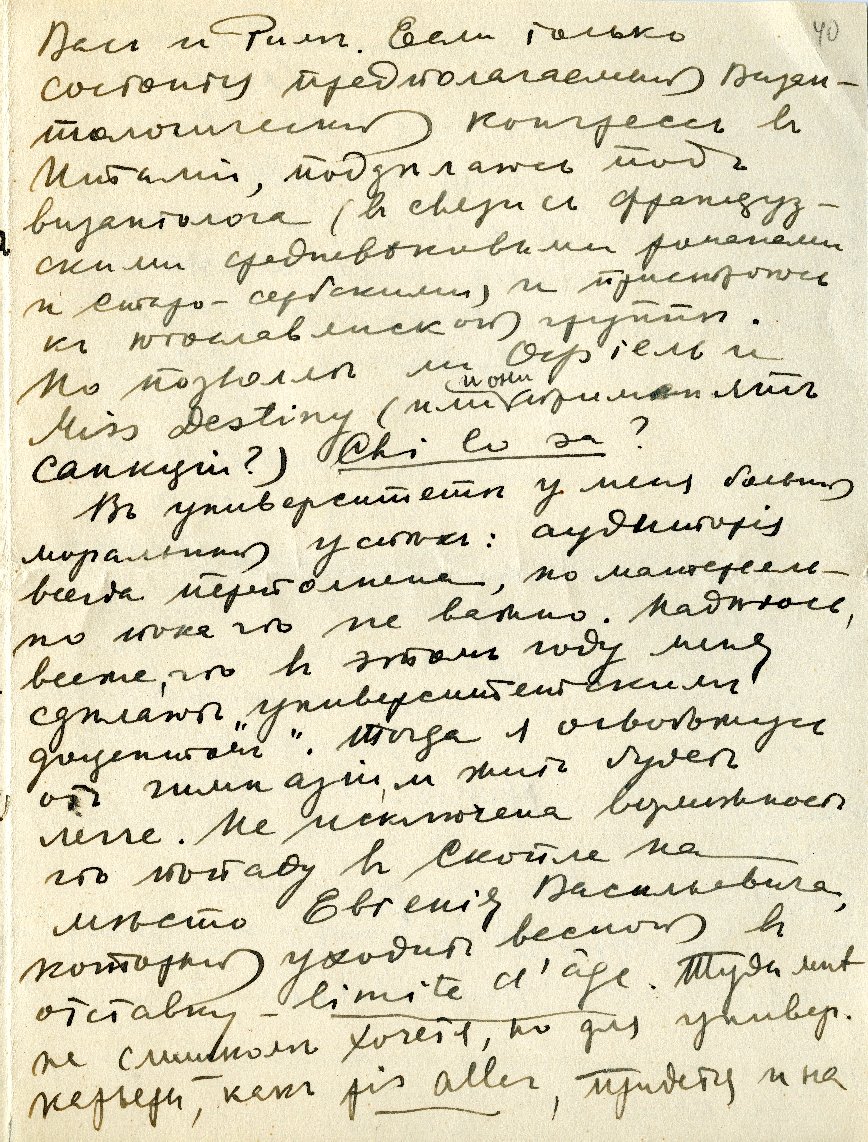 40
Васъ и Римъ. Если только
состоится предполагаемый Визан-
тологическій конгрессъ въ
Италіи, поддѣлаюсь подъ
византолога (въ связи съ француз-
скими средневѣковыми романами
и старо-сербскими) и пристроюсь
къ югославянской группѣ.
Но позволятъ ли
Miss Destiny (или и они примѣнятъ
санкціи?) Chi lo sa?
Въ университетѣ у меня большой
моральный успѣхъ: аудиторія
всегда переполнена, но матеріаль-
но пока что не важно. Надѣюсь,
все же, что въ этомъ году меня
сдѣлаютъ „университетскимъ
доцентомъ". Тогда я освобожусь
отъ гимназіи, и жить будетъ
легче. Не исключена возможность
что попаду въ Скопле на
мѣсто Евгенія Васильевича,
который уходитъ весной въ
отставку – limite d'âge. Туда мнѣ
не слишкомъ хочется, но для универ.
карьеры, какъ pis aller, придется и на